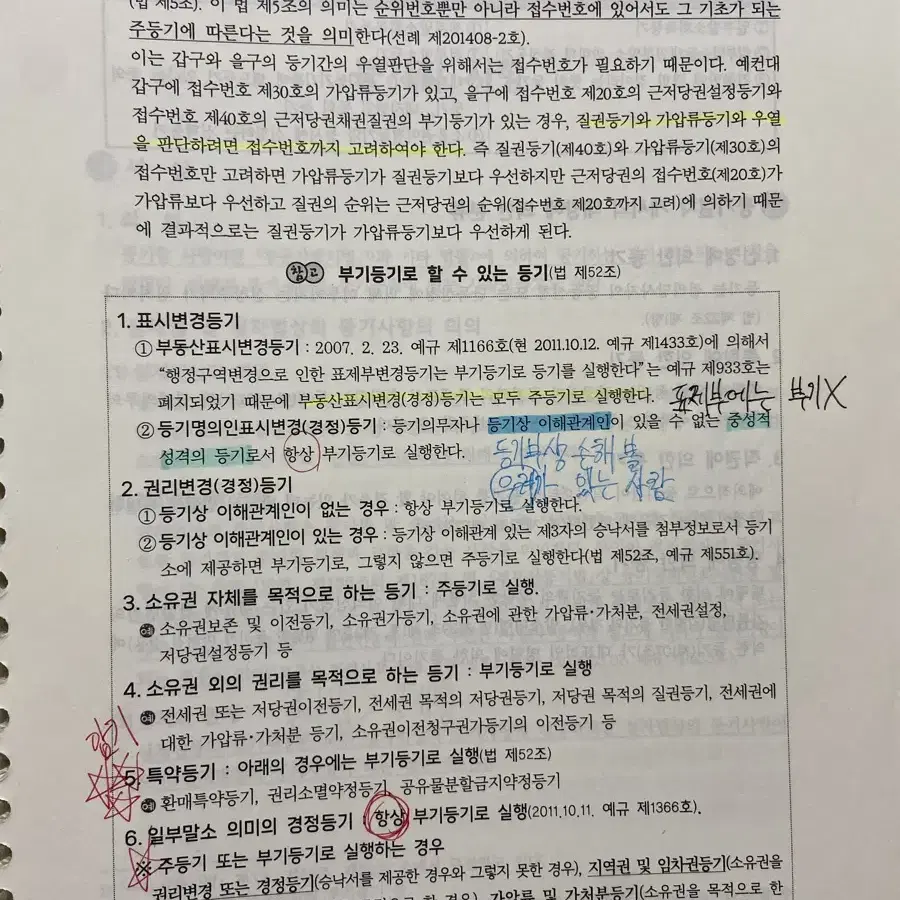 (법 제5조). 이 법 제5조의 의미는 순위번호뿐만 아니라 접수번호에 있어서도 그 기초가 되는
주등기에 따른다는 것을 의미한다(선례 제201408-2호).
이는 갑구와 을구의 등기간의 우열판단을 위해서는 접수번호가 필요하기 때문이다. 예컨대
갑구에 접수번호 제30호의 가압류등기가 있고, 을구에 접수번호 제20호의 근저당권설정등기와
접수번호 제40호의 근저당권채권질권의 부기등기가 있는 경우, 질권등기와 가압류등기와 우열
을 판단하려면 접수번호까지 고려하여야 한다. 즉 질권등기(제40호)와 가압류등기(제30호)의
접수번호만 고려하면 가압류등기가 질권등기보다 우선하지만 근저당권의 접수번호(제20호)가
가압류보다 우선하고 질권의 순위는 근저당권의 순위(접수번호 제20호까지 고려)에 의하기 때문
에 결과적으로는 질권등기가 가압류등기보다 우선하게 된다.
참고 부기등기로 할 수 있는 등기(법 제52조)
1. 표시변경등기
① 부동산표시변경등기 : 2007. 2. 23. 예규 제1166호(현 2011.10.12. 예규 제1433호)에 의해서
“행정구역변경으로 인한 표제부변경등기는 부기등기로 등기를 실행한다”는 예규 제933호는
폐지되었기 때문에 부동산표시변경(경정)등기는 모두 주등기로 실행한다. 표제부에는 부기X
② 등기명의인표시변경(경정)등기 : 등기의무자나 등기상 이해관계인이 있을 수 없는 중성적
성격의 등기로서 항상 부기등기로 실행한다. 등기부상 손해 볼
우려가 있는 사람
2. 권리변경(경정)등기
① 등기상 이해관계인이 없는 경우 : 항상 부기등기로 실행한다.
② 등기상 이해관계인이 있는 경우 : 등기상 이해관계 있는 제3자의 승낙서를 첨부정보로서 등기
소에 제공하면 부기등기로, 그렇지 않으면 주등기로 실행한다(법 제52조, 예규 제551호).
3. 소유권 자체를 목적으로 하는 등기 : 주등기로 실행.
예 소유권보존 및 이전등기, 소유권가등기, 소유권에 관한 가압류·가처분, 전세권설정,
저당권설정등기 등
4. 소유권 외의 권리를 목적으로 하는 등기 : 부기등기로 실행
예 전세권 또는 저당권이전등기, 전세권 목적의 저당권등기, 저당권 목적의 질권등기, 전세권에
대한 가압류·가처분 등기, 소유권이전청구권가등기의 이전등기 등
암기
5. 특약등기 : 아래의 경우에는 부기등기로 실행(법 제52조)
예 환매특약등기, 권리소멸약정등기, 공유물분할금지약정등기
6. 일부말소 의미의 경정등기 : 항상 부기등기로 실행(2011.10.11. 예규 제1366호).
※ 주등기 또는 부기등기로 실행하는 경우
권리변경 또는 경정등기(승낙서를 제공한 경우와 그렇지 못한 경우), 지역권 및 임차권등기(소유권을
가압류 및 가처분등기(소유권을 목적으로 한